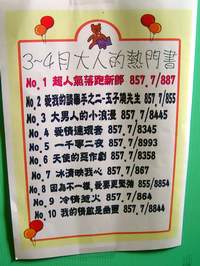 3~4月大人的熱門書
No.1 超人氣落跑新郎 857.7/887
No.2 愛我的請舉手之二-玉子曉先生 857.7/855
No.3 大男人的小浪漫 857.7/8445
No.4 愛情連環套 857.7/8345
No.5 一千零二夜 857.7/8993
No.6 天使的惡作劇 857.7/8358
No.7 冰清映我心 857.7/867
No.8 因為不一樣,我要更堅強 855/8854
No.9 冷情獵火 857.7/864
No.10 我的情敵是幽靈 857.7/8844